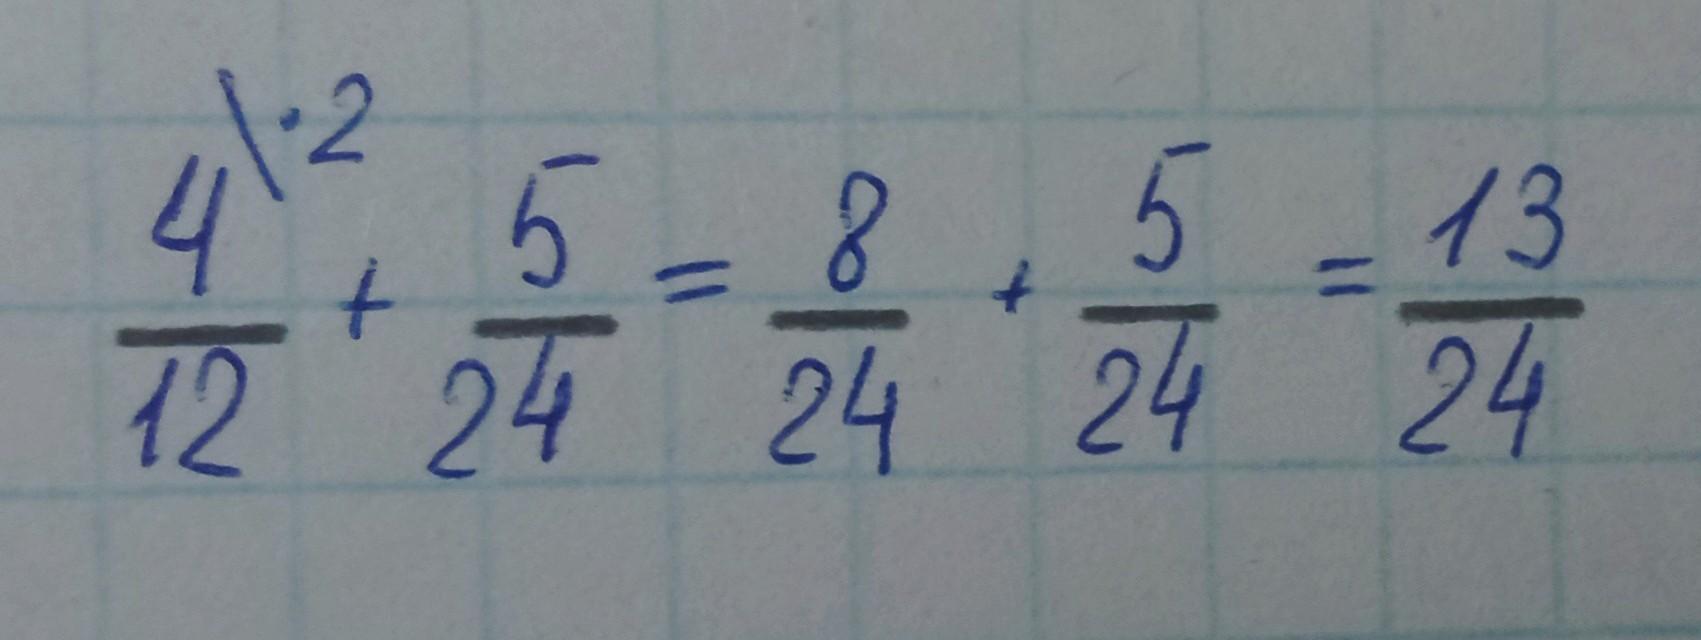 4\·2/12 + 5/24 = 8/24 + 5/24 = 13/24